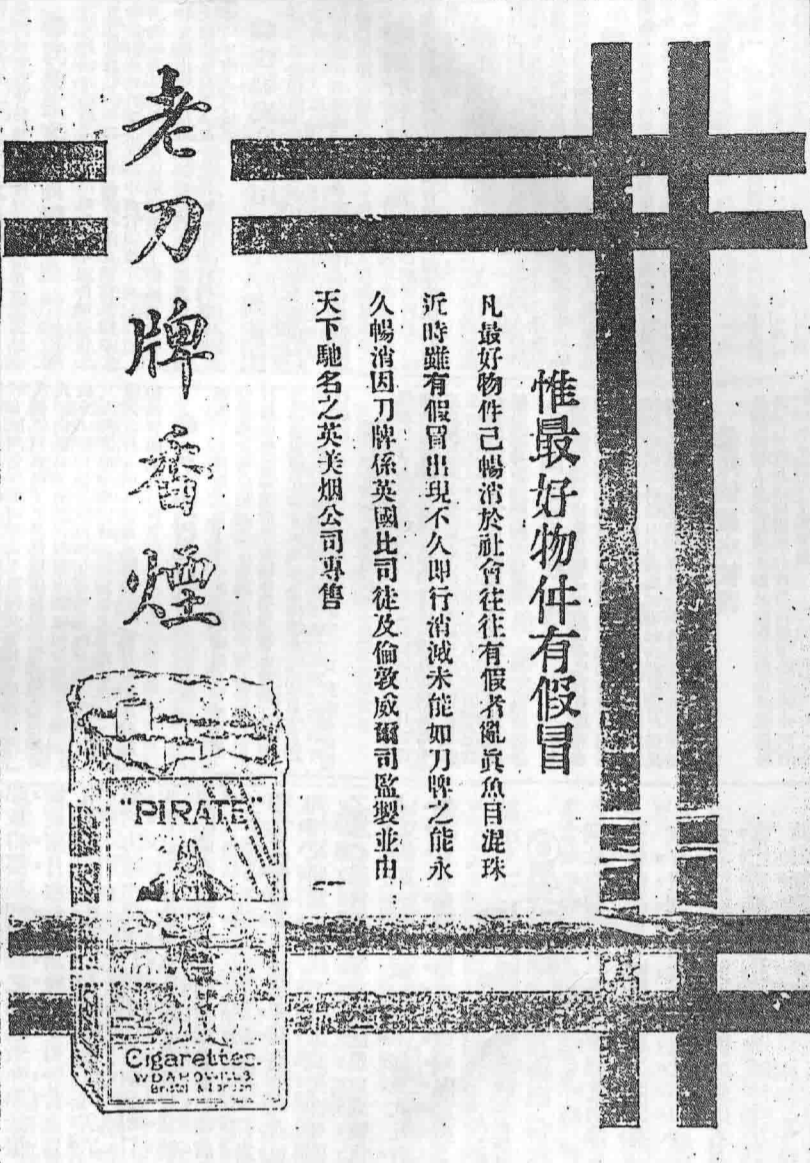 惟最好物件有假冒
凡最好物件己暢消於社會往往有假者亂眞魚目混珠
近時雖有假冒出現不久即行消滅未能如刀牌之能永
久暢消因刀牌係英國比司徒及倫敦威爾司監製並由
天下馳名之英美烟公司專售
老刀牌香煙
"PIRATE"
Cigarettes.
W.D.& H.O.WILLS.
Bristol & London